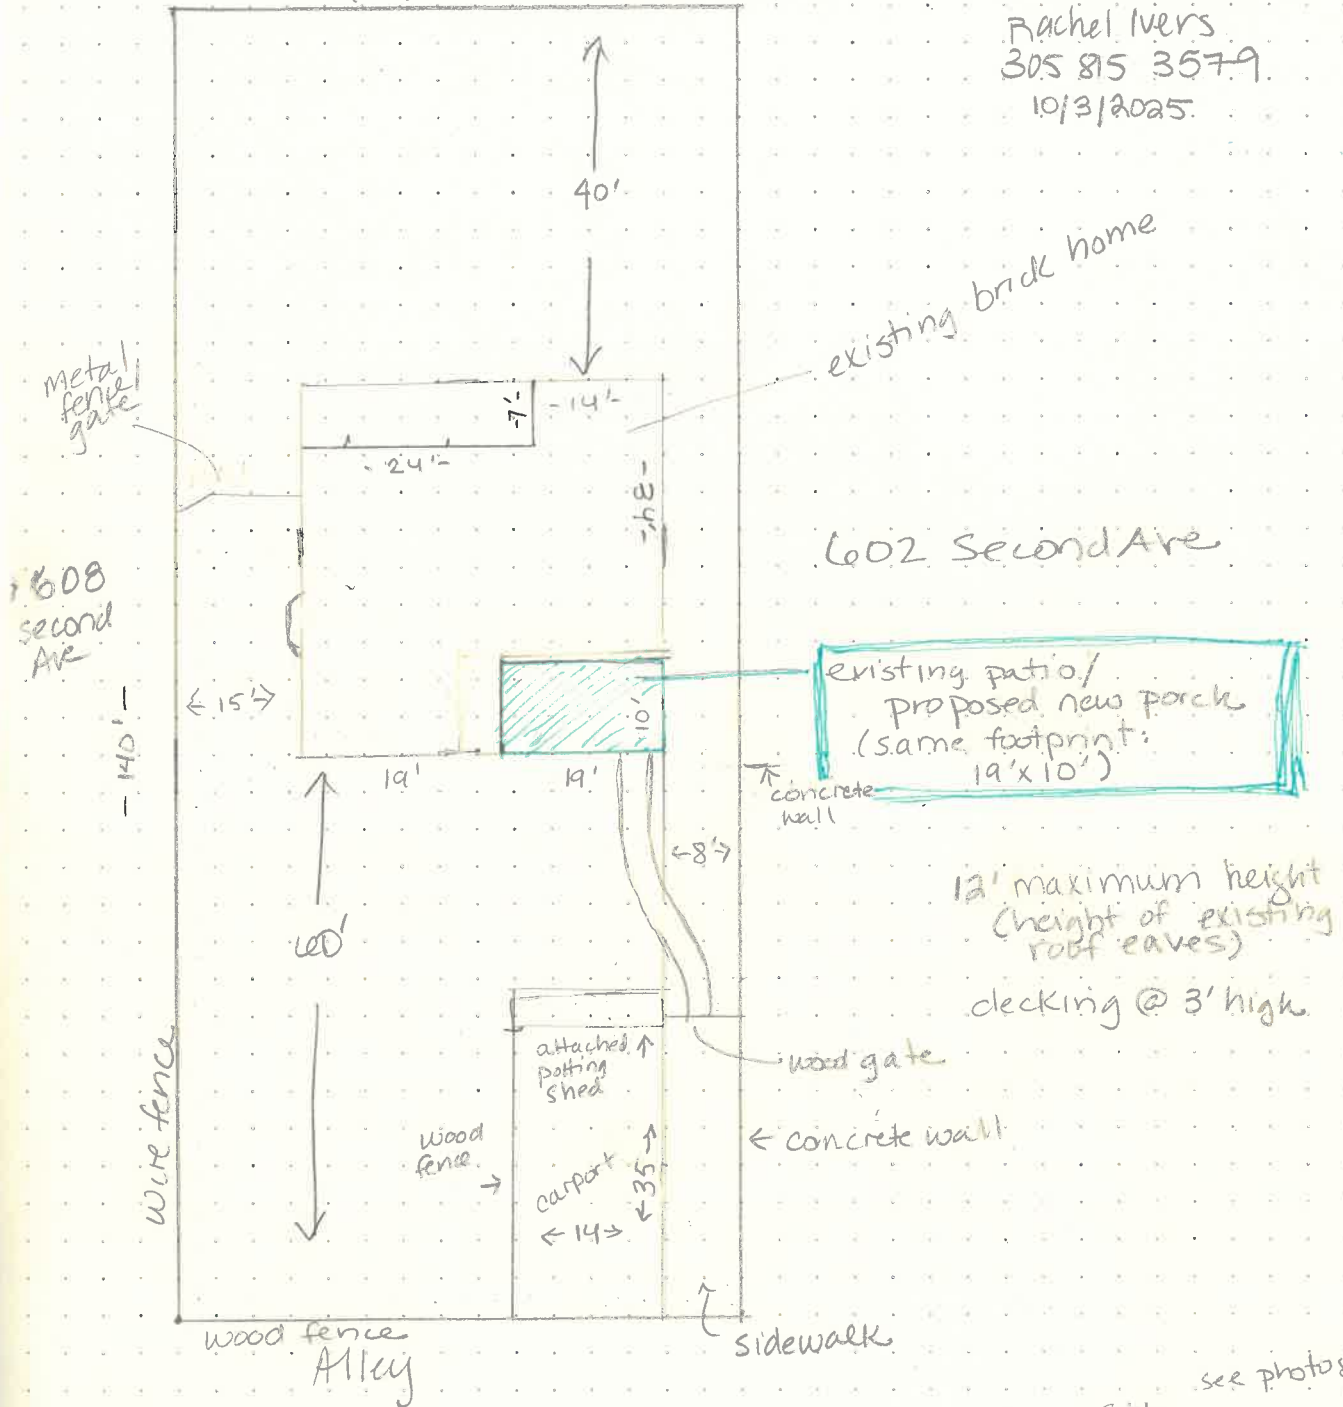 Rachel Ivers
305 815 3579
10/3/2025
40'
existing brick home
metal
fence/
gate
-7'-
-14'-
-24'-
-34'-
602 Second Ave
608
second
Ave
existing patio/
proposed new porch
(same footprint:
19'x10')
←15'→
-140'-
10'
19'
19'
concrete
wall
←8'→
12' maximum height
(height of existing
roof eaves)
decking @ 3' high
60'
attached
potting
shed
wood gate
wire fence
wood
fence
carport
←35→
←14→
← concrete wall
wood fence
Alley
sidewalk
see photos